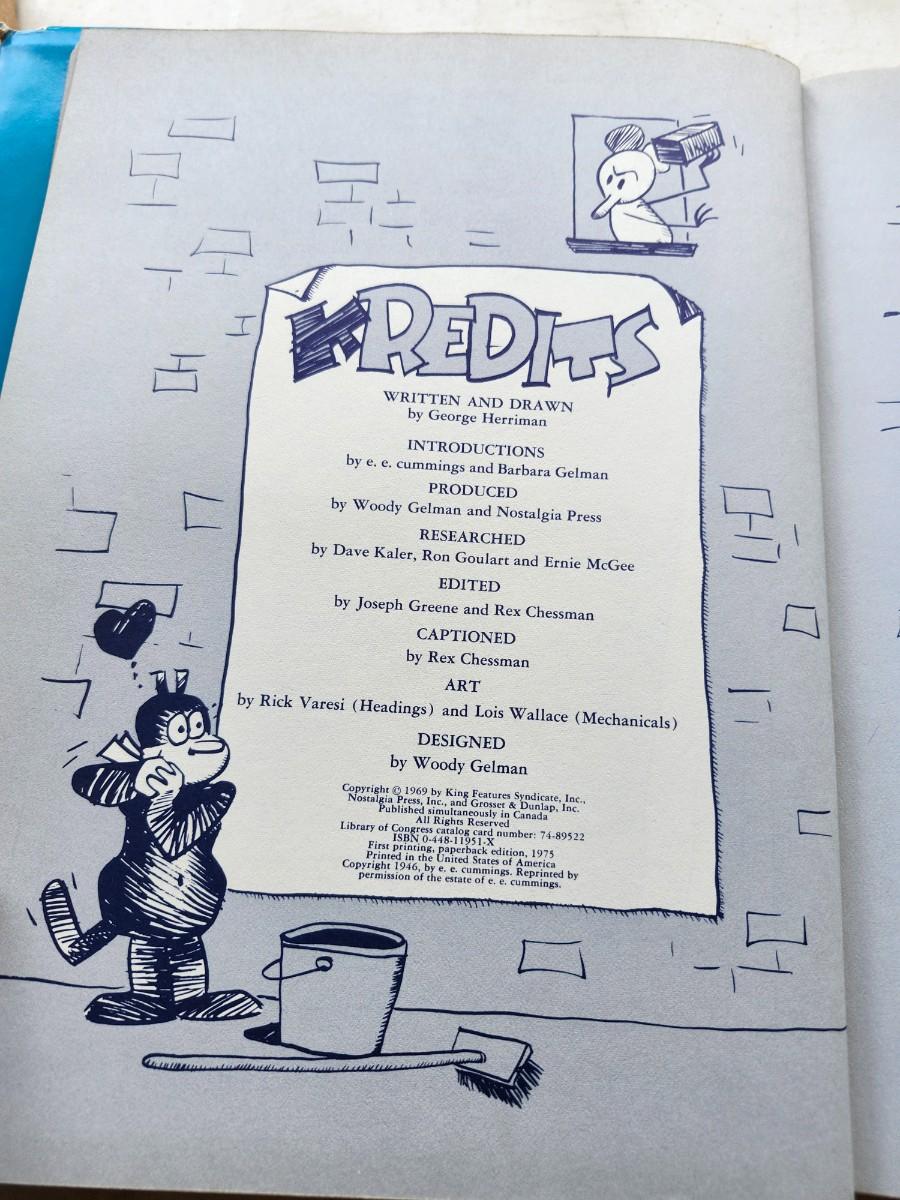 KREDITS
WRITTEN AND DRAWN
by George Herriman
INTRODUCTIONS
by e. e. cummings and Barbara Gelman
PRODUCED
by Woody Gelman and Nostalgia Press
RESEARCHED
by Dave Kaler, Ron Goulart and Ernie McGee
EDITED
by Joseph Greene and Rex Chessman
CAPTIONED
by Rex Chessman
ART
by Rick Varesi (Headings) and Lois Wallace (Mechanicals)
DESIGNED
by Woody Gelman
Copyright © 1969 by King Features Syndicate, Inc.,
Nostalgia Press, Inc., and Grosset & Dunlap, Inc.
Published simultaneously in Canada
All Rights Reserved
Library of Congress catalog card number: 74-89522
ISBN 0-448-11951-X
First printing, paperback edition, 1975
Printed in the United States of America
Copyright 1946, by e. e. cummings. Reprinted by
permission of the estate of e. e. cummings.